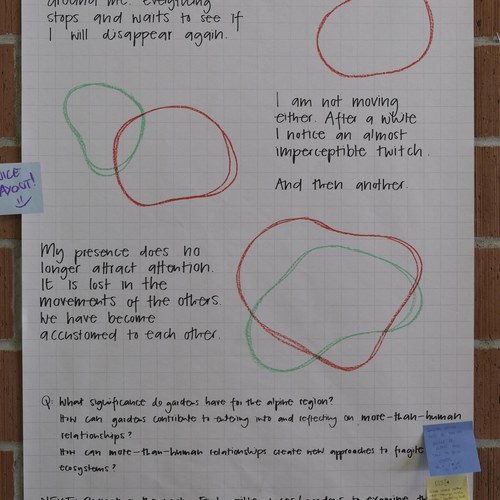 around me. everything
stops and waits to see if
I will disappear again.
I am not moving
either. After a while
I notice an almost
imperceptible twitch.
And then another.
NICE
LAYOUT!
My presence does no
longer attract attention.
It is lost in the
movements of the others.
We have become
accustomed to each other.
Q: What significance do gardens have for the alpine region?
How can gardens contribute to entering into and reflecting on more-than-human
relationships?
How can more-than-human relationships create new approaches to fragile
ecosystems?
NEXT: